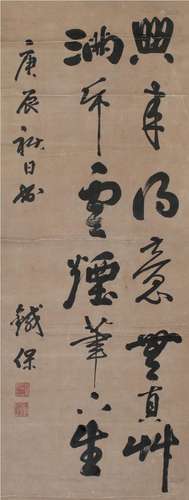 興來得意無真艸
滿帋雲煙筆下生
庚辰秋日書
鐵保